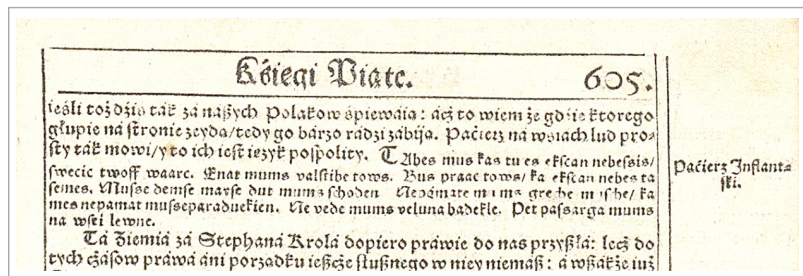 Księgi Piąte. 605.
ieśli toż dziś ták zá nászych Polakow śpiewáią: ácż to wiem że gdzie ktorego
głupie ná stronie zeydą/tedy go bárzo rádzi zábiją. Páćierz ná wsiách lud pro-
sty ták mowi/y to ich iest ięzyk pospolity. TAbes mus kas tu es ekscan nebessis/
swecic twoff waarc. Enat mums valstibe tows. Bus praac tows/ ka ekscan nebes ta
semes. Musse demse mayse dut mums schoden Nepámate mums greche musche/ ka
mes nepamat musseparaduekien. Ne vede mums veluna badekle. Pet passarga mums
na wsei lewne.
Páćierz Inflant-
ski.
Tá Ziemiá zá Stephaná Krolá dopiero práwie do nas przyszłá: lecż do
tych cżásow práwá áni porządku ieszcże słusznego w niey niemász: á wszákże iuż